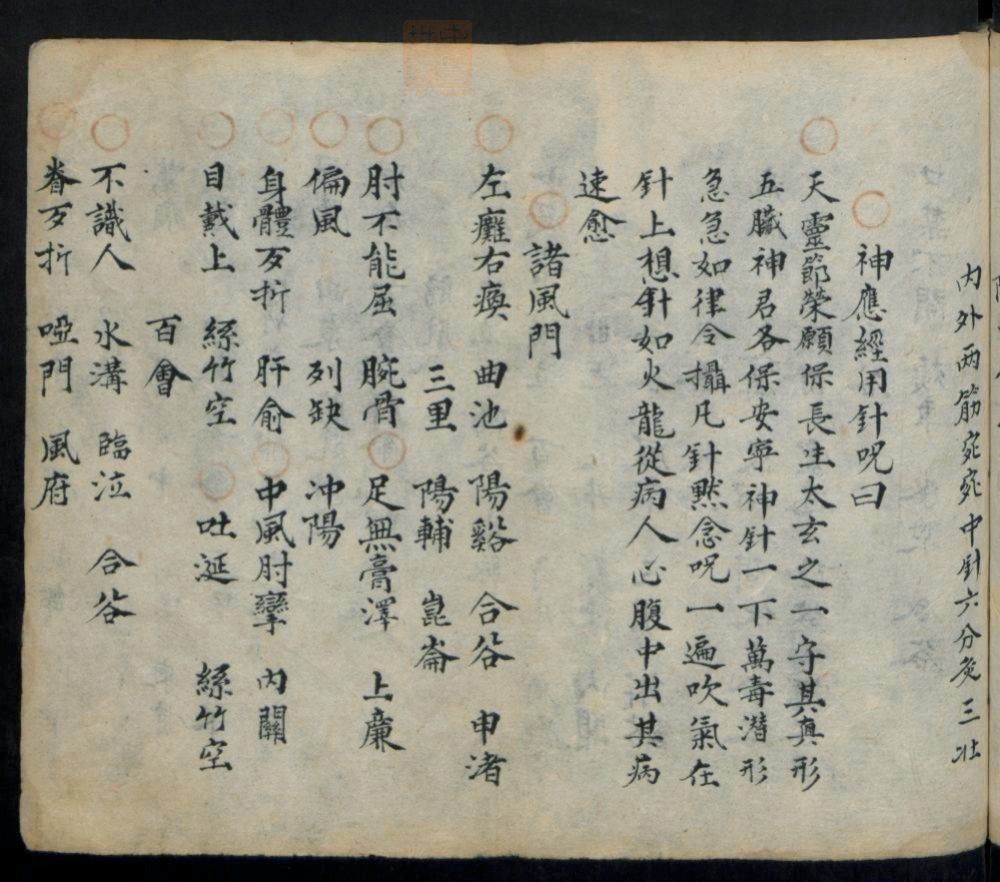 内外两筋宛宛中針六分灸三壮
神應經用針呪曰
天靈節榮願保長生太玄之一守其真形
五臟神君各保安寧神針一下萬毒潜形
急急如律令攝凡針黙念呪一遍吹氣在
針上想針如火龍從病人心腹中出其病
速愈
諸風門
左癱右瘓 曲池 陽谿 合谷 申渚
三里 陽輔 崑崙
肘不能屈 腕骨 足無膏澤 上廉
偏風 列缺 冲陽
身體歹折 肝俞 中風肘攣 内關
目戴上 絲竹空 吐涎 絲竹空
百會
不識人 水溝 臨泣 合谷
脊歹折 啞門 風府